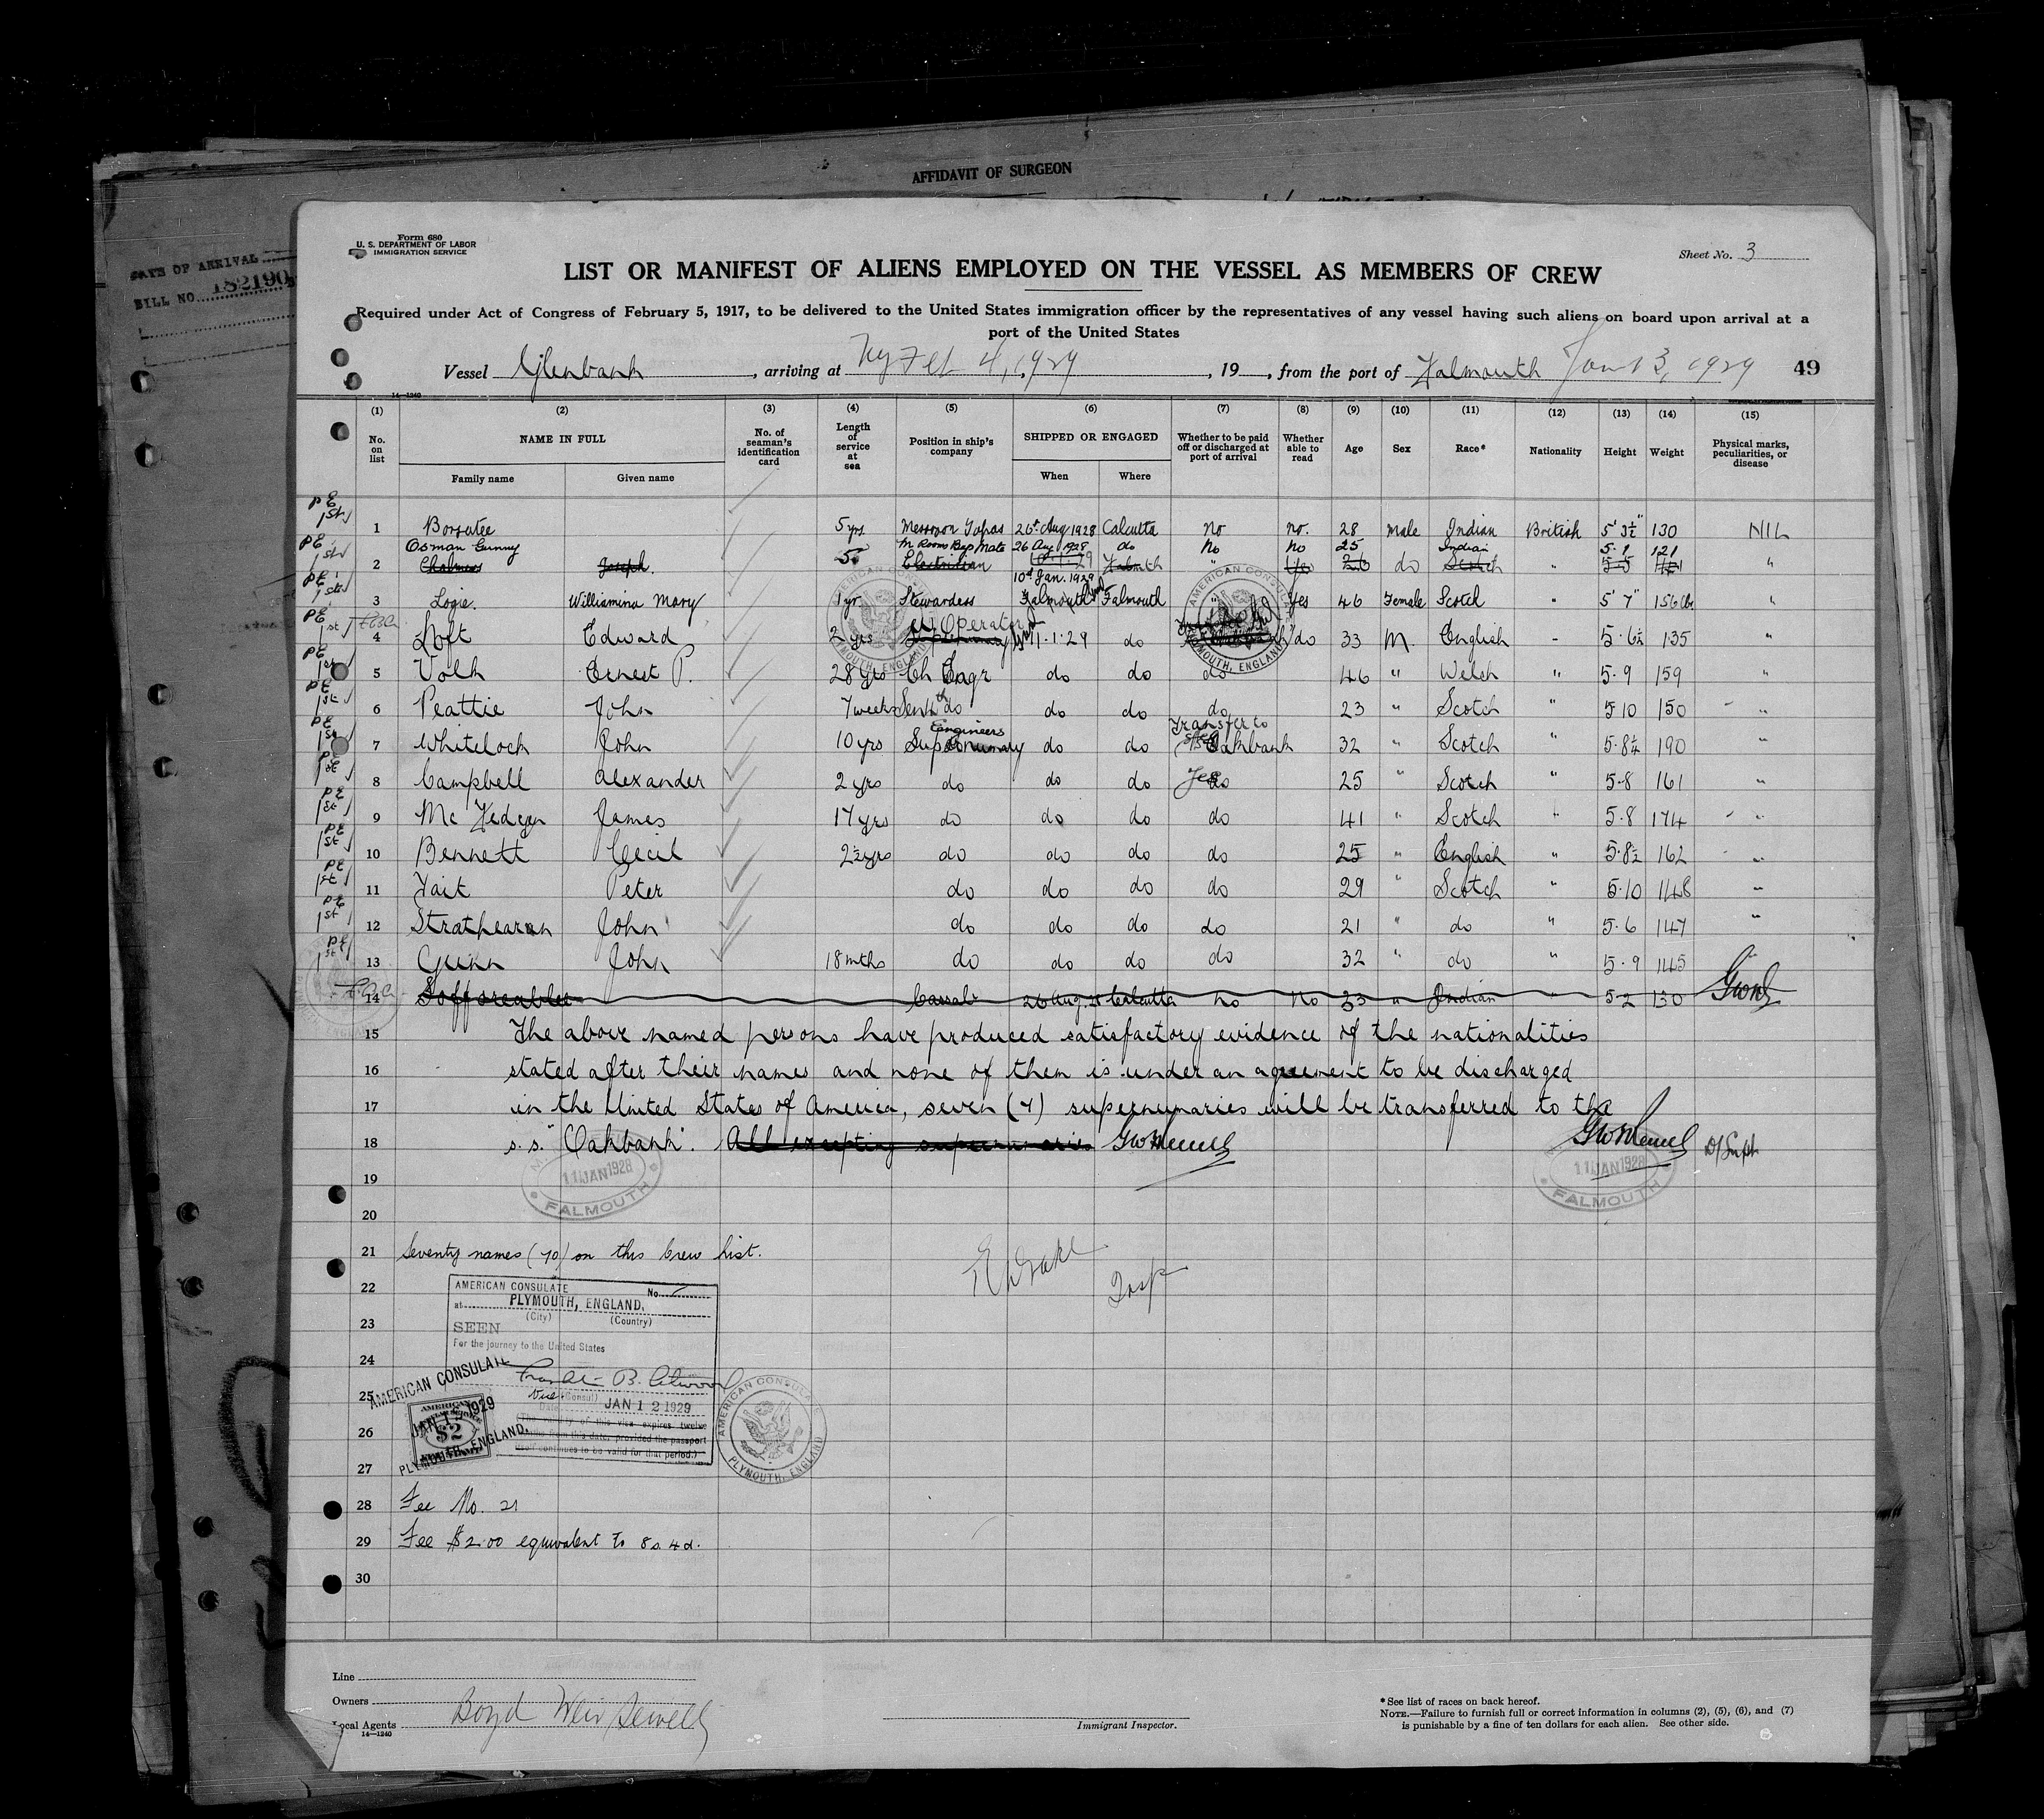 AFFIDAVIT OF SURGEON
DATE OF ARRIVAL
BILL NO. 182190
Form 680
U. S. DEPARTMENT OF LABOR
IMMIGRATION SERVICE
Sheet No. 3
LIST OR MANIFEST OF ALIENS EMPLOYED ON THE VESSEL AS MEMBERS OF CREW
Required under Act of Congress of February 5, 1917, to be delivered to the United States immigration officer by the representatives of any vessel having such aliens on board upon arrival at a
port of the United States
Vessel Glenbank, arriving at Ny Feb 4, 1929, 19 , from the port of Falmouth Jan 13, 1929 49
14—1240
(1) (2) (3) (4) (5) (6) (7) (8) (9) (10) (11) (12) (13) (14) (15)
No. on list NAME IN FULL No. of seaman's identification card Length of service at sea Position in ship's company SHIPPED OR ENGAGED Whether to be paid off or discharged at port of arrival Whether able to read Age Sex Race* Nationality Height Weight Physical marks, peculiarities, or disease
Family name Given name When Where
PE 1st 1 Borsatee 5 yrs Messroom Topas 26th Aug 1928 Calcutta No no. 28 Male Indian British 5' 3½" 130 NIL
Osman Gunny M Rooms Bap Mate 26 Aug 1928 do No No 25 Indian 5.1 121
PE 1st 2 Chalmers Joseph. 5 Electrician 10.1.29 Falmth " Yes 26 do Scotch " 5-5 "
10th Jan. 1929
PE 1st 3 Logie. Williamina Mary 1 yr Stewardess Falmouth Falmouth " Yes 46 Female Scotch " 5' 7" 156 lbs "
W Operator
PE 1st 4 Loft Edward 2 yrs 11.1.29 do do 33 M. English - 5.6½ 135 "
PE 1st 5 Volk Ernest P. 28 yrs Ch Engr do do do 46 " Welch " 5.9 159 "
PE 1st 6 Peattie John 7 weeks do do do do 23 " Scotch " 5 10 150 "
Engineers Transfer to
PE 1st 7 Whitelock John 10 yrs Supernumary do do Oakbank 32 " Scotch " 5.8¼ 190 "
PE 1st 8 Campbell Alexander 2 yrs do do do do 25 " Scotch " 5-8 161 "
PE 1st 9 James 17 yrs do do do do 41 " Scotch " 5.8 174 "
PE 1st 10 Bennett Cecil 2½ yrs do do do do 25 " English " 5.8½ 162 "
PE 1st 11 Tait Peter do do do do 29 " Scotch " 5.10 148 "
PE 1st 12 Strathearn John do do do do 21 " do " 5.6 147 "
PE 1st 13 Gunn John 18 mths do do do do 32 " do " 5.9 145
14 Cassab 26 Aug. 28 Calcutta no No 23 " Indian " 5-2 130
15 The above named persons have produced satisfactory evidence of the nationalities
16 stated after their names and none of them is under an agreement to be discharged
17 in the United States of America, seven (7) supernumaries will be transferred to the
18 s.s. "Oakbank". All excepting supernumaries
D/Supt
11 JAN 1928 FALMOUTH
11 JAN 1928 FALMOUTH
19
20
21 Seventy names (70) on this Crew List.
Insp
22 AMERICAN CONSULATE No.
at PLYMOUTH, ENGLAND.
(City) (Country)
23 SEEN
For the journey to the United States
24
AMERICAN CONSULATE
25 Vice (Consul)
Date JAN 12 1929
(The validity of this visa expires twelve
26 months from this date, provided the passport
itself continues to be valid for that period.)
AMERICAN $2
JAN 12 1929
PLYMOUTH, ENGLAND.
AMERICAN CONSULATE PLYMOUTH, ENGLAND
27
28 Fee No. 21
29 Fee $2.00 equivalent to 8s. 4d.
30
Line
Owners
Local Agents Boyd Weir Sewell
14—1240
Immigrant Inspector.
*See list of races on back hereof.
NOTE.—Failure to furnish full or correct information in columns (2), (5), (6), and (7)
is punishable by a fine of ten dollars for each alien. See other side.